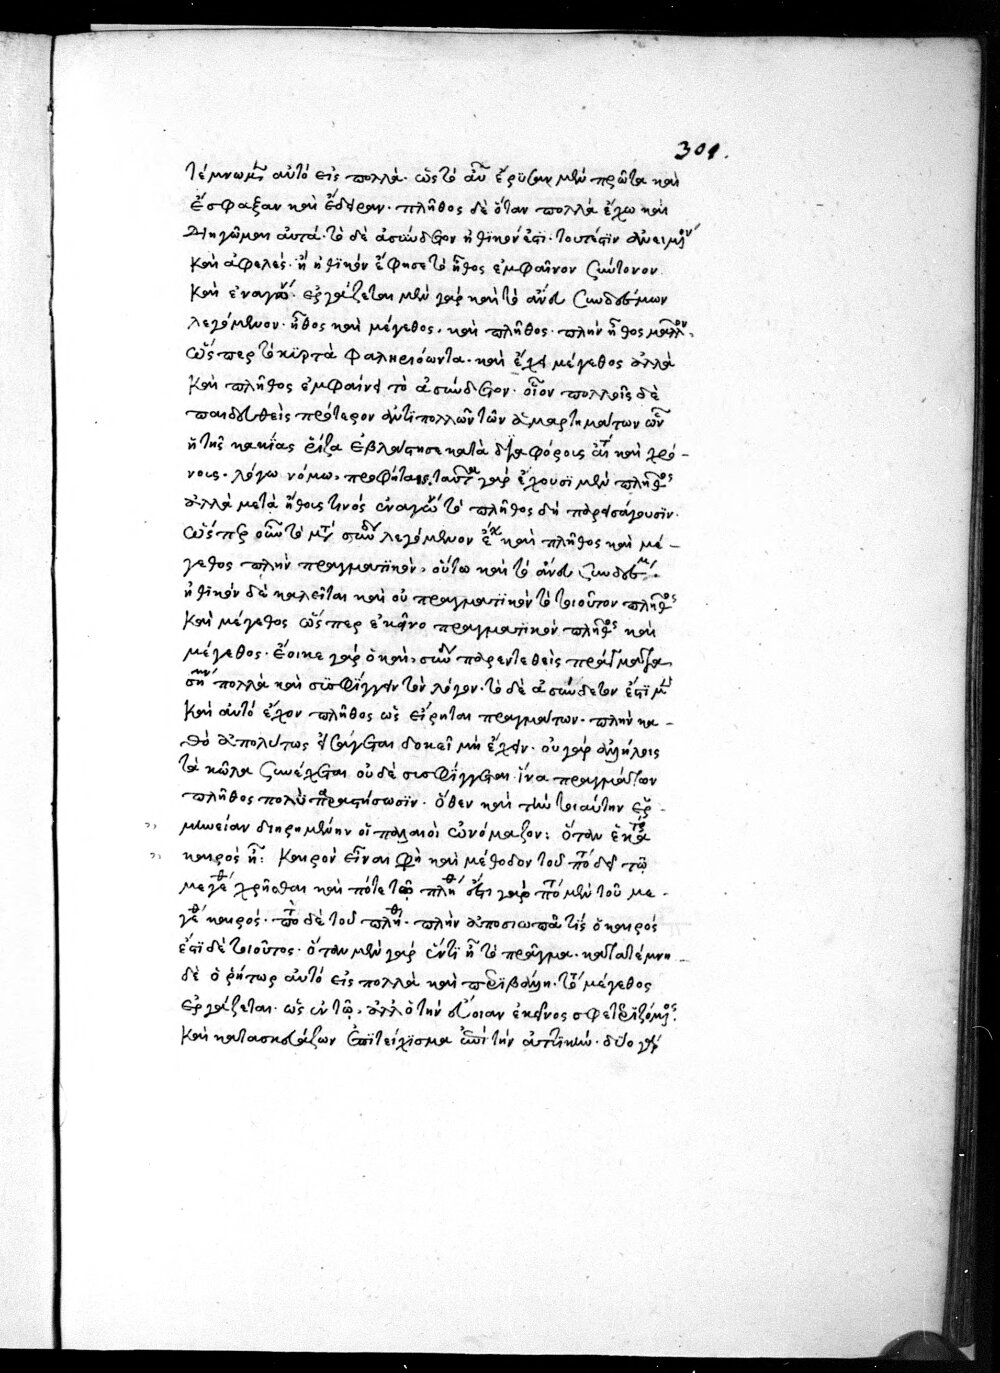 301.
τέμνωμεν αὐτὸ εἰς πολλά. ὡς τὸ αὖ ἔρυσαν μὲν πρῶτα καὶ
ἔσφαξαν καὶ ἔδειραν. πλῆθος δὲ ὅταν πολλὰ ἔχω καὶ
διηγῶμαι αὐτά. τὸ δὲ ἀσύνδετον ἠθικόν ἐστι. τουτέστιν ἀνειμένον
καὶ ἀφελές. ἢ ἠθικὸν ἔφησε τὸ ἦθος ἐμφαῖνον σύντονον
καὶ ἐναγώνιον. ἐργάζεται μὲν γὰρ καὶ τὸ ἄνευ συνδέσμων
λεγόμενον. ἦθος καὶ μέγεθος. καὶ πλῆθος. πλὴν ἦθος μᾶλλον.
ὥσπερ τὸ κυρτὰ φαληριόωντα. καὶ ἔχει μέγεθος ἀλλὰ
καὶ πλῆθος ἐμφαίνει τὸ ἀσύνδετον. οἷον πολλοῖς δὲ
παιδευθεὶς πρότερον ἀντὶ πολλῶν τῶν ἁμαρτημάτων ὧν
ἡ τῆς κακίας ῥίζα ἐβλάστησε κατὰ διαφόρους αἰτίας καὶ χρό-
νους. λόγω νόμω, προφήταις. ταῦτα γὰρ ἔχουσι μὲν πλῆθος
ἀλλὰ μετὰ ἤθους τινὸς ἐναγώνιον τὸ πλῆθος δὴ παρεισάγουσιν.
ὥσπερ οὖν τὸ μετὰ συνδέσμου λεγόμενον ἔχει καὶ πλῆθος καὶ μέ-
γεθος πλὴν πραγματικὸν, οὕτω καὶ τὸ ἄνευ συνδέσμου.
ἠθικὸν δὲ καλεῖται καὶ οὐ πραγματικὸν τὸ τοιοῦτον πλῆθος
καὶ μέγεθος ὥσπερ ἐκεῖνο πραγματικὸν πλῆθος καὶ
μέγεθος. ἔοικε γὰρ ὁ καὶ, σύνδεσμος παρεντεθεὶς πράγματα
συνάγειν πολλὰ καὶ συσφίγγειν τὸν λόγον. τὸ δὲ ἀσύνδετον ἐστὶ μὲν
καὶ αὐτὸ ἔχον πλῆθος ὡς εἴρηται πραγμάτων. πλὴν κα-
θὸ ἀπολύτως εἰσάγεται δοκεῖ μὴ ἔχειν. οὐ γὰρ ἀλλήλοις
τὰ κῶλα συνέχεται οὐδὲ συσφίγγεται ἵνα πραγμάτων
πλῆθος πολὺ παραστήσωσιν. ὅθεν καὶ τὴν τοιαύτην ἑρ-
μηνείαν διηρημένην οἱ παλαιοὶ ὠνόμαζον: ὅταν ἑκατέρου
καιρὸς ᾖ: καιρὸν εἶναι φησὶ καὶ μέθοδον τοῦ πότε δεῖ τῷ
μεγέθει χρῆσθαι καὶ πότε τῷ πλήθει ἔστι γὰρ ποτὲ μὲν τοῦ με-
γέθους καιρός. ποτὲ δὲ τοῦ πλήθους. πλὴν ἀποσιωπᾷ τίς ὁ καιρός
ἐστὶ δὲ τοιοῦτος. ὅταν μὲν γὰρ ἕν τι ᾖ τὸ πρᾶγμα. κατατέμνη
δὲ ὁ ῥήτωρ αὐτὸ εἰς πολλὰ καὶ περιβάλλη. τότε μέγεθος
ἐργάζεται. ὡς ἐν τῷ, ἀλλ' ὁ τὴν εὔβοιαν ἐκεῖνος σφετεριζόμενος.
καὶ κατασκευάζων ἐπιτείχισμα ἐπὶ τὴν ἀττικήν. δύο γὰρ